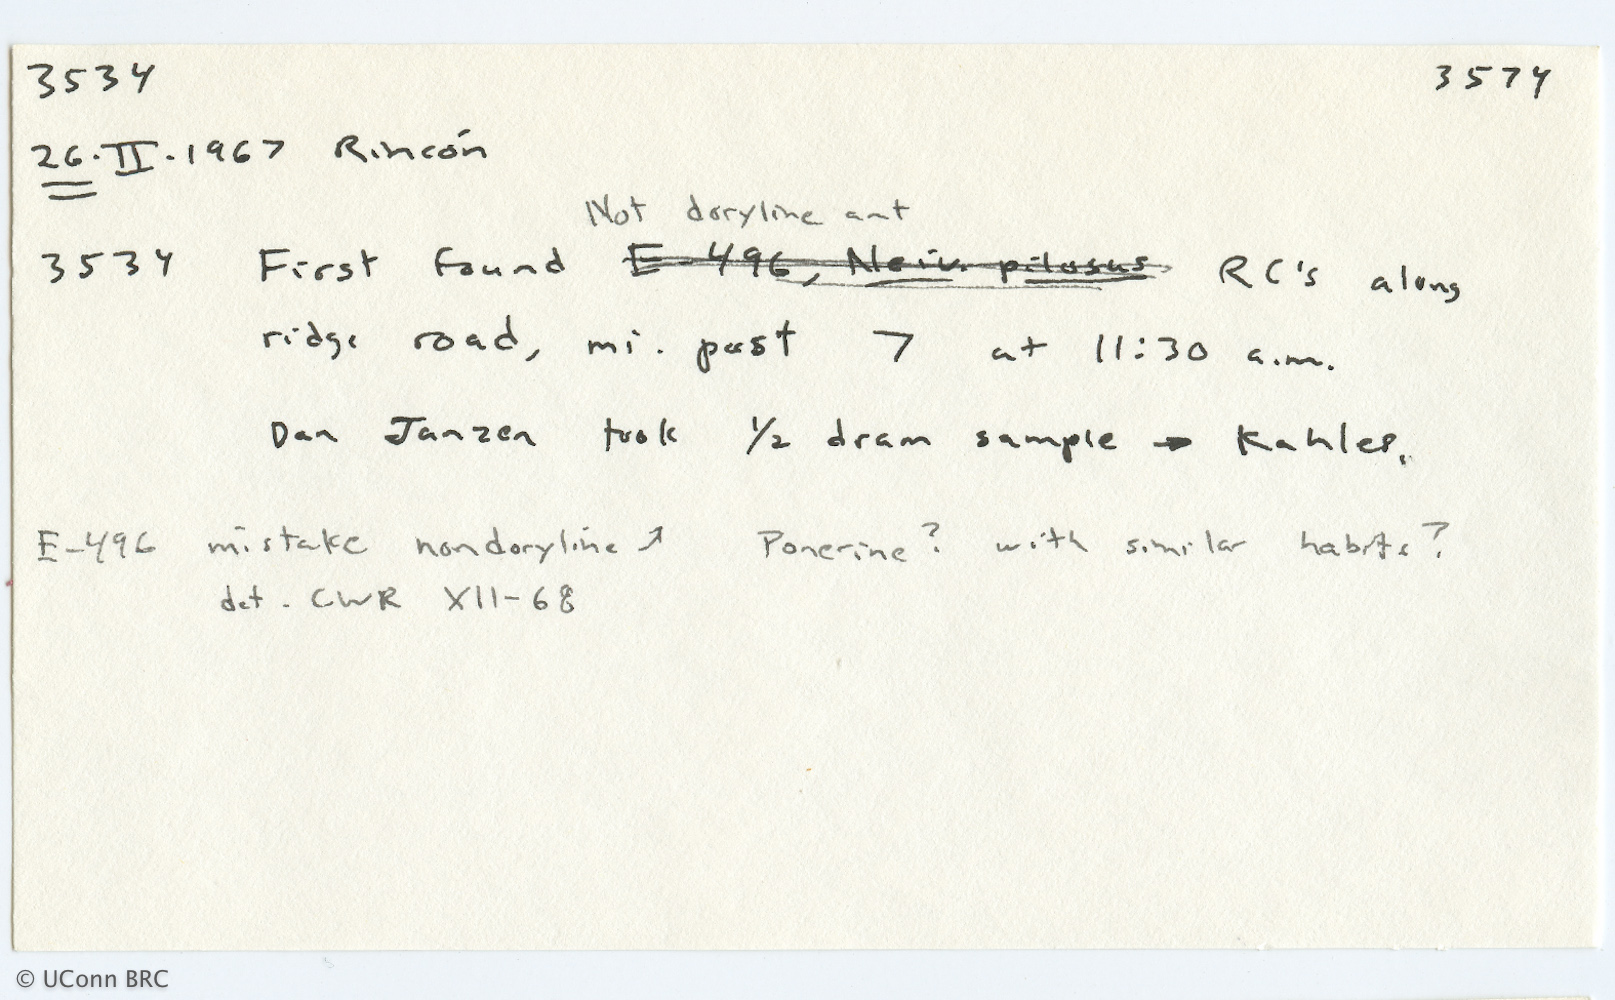 3534 3574
26.II.1967 Rincón
Not doryline ant
3534 First found E-496, Neiv. pilosus RC's along
ridge road, mi. past 7 at 11:30 a.m.
Dan Janzen took 1/2 dram sample → Kahler.
E-496 mistake nondoryline ↗ Ponerine? with similar habits?
det. CWR XII-68
© UConn BRC